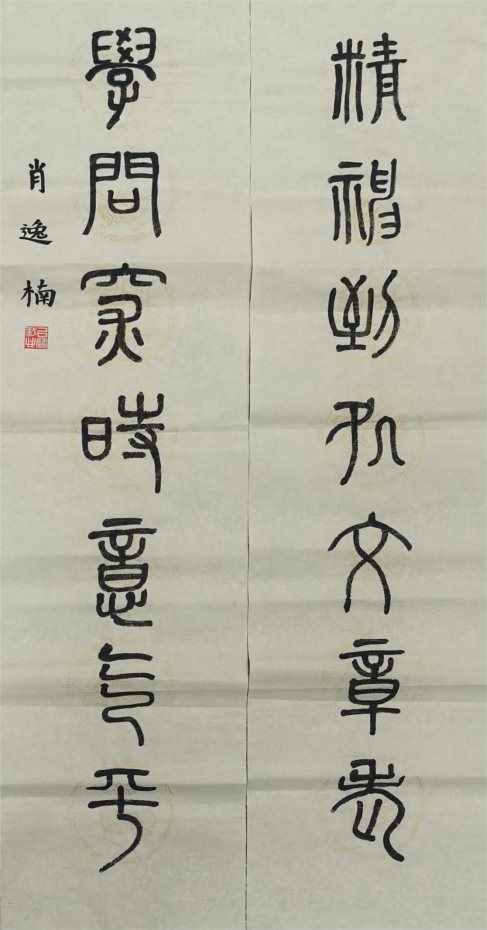 精神到処文章老
學問罙時意气平
肖逸楠